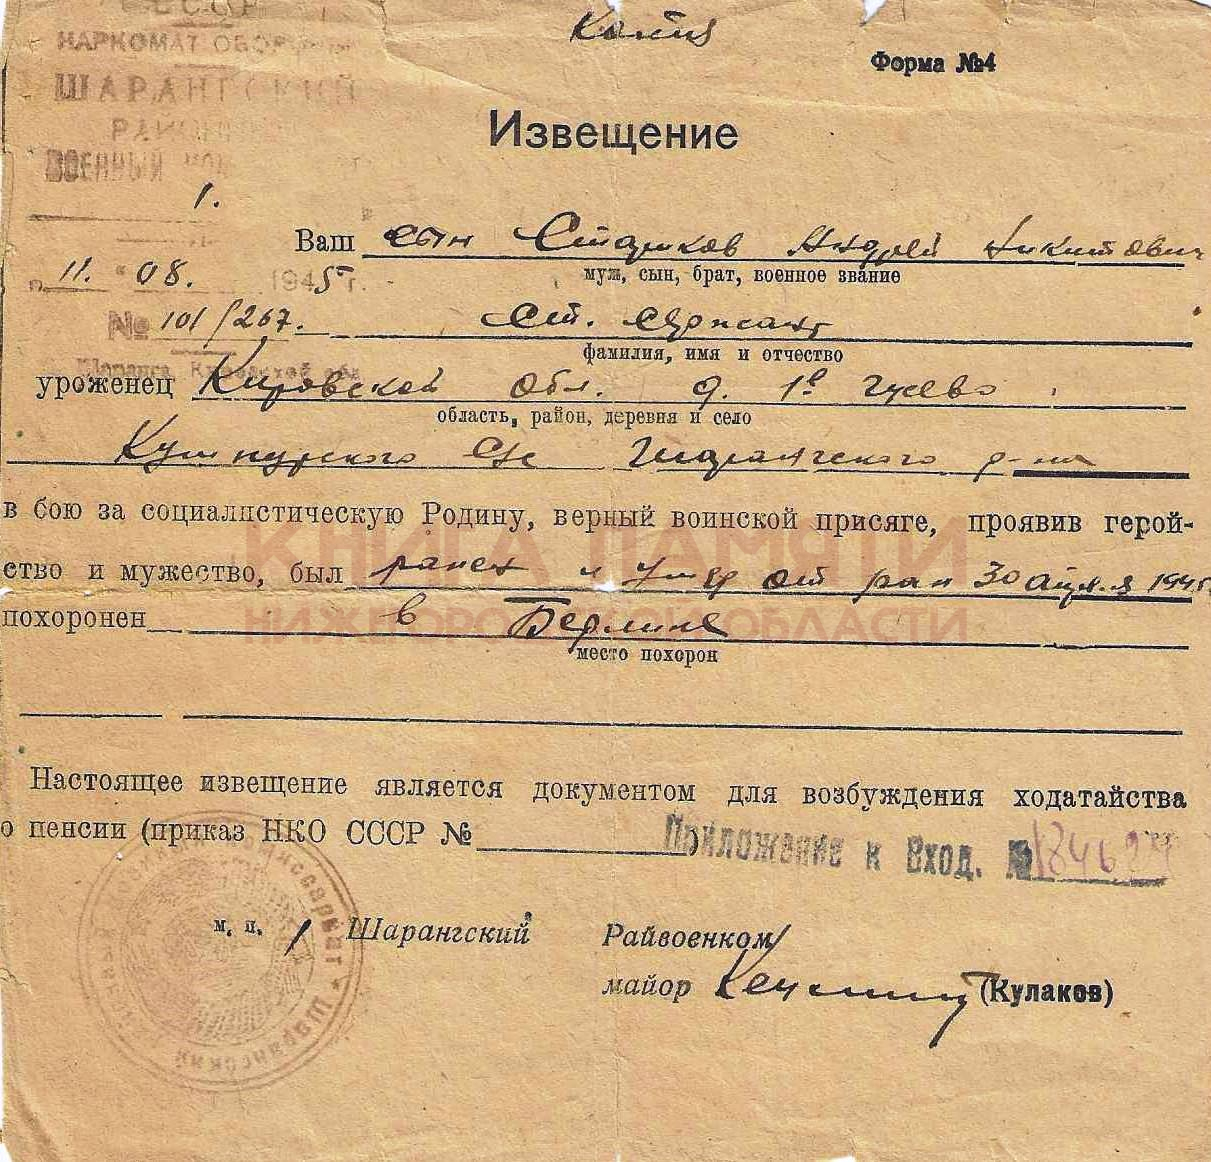 СССР
Копия
НАРКОМАТ ОБОРОНЫ
Форма №4
ШАРАНГСКИЙ
РАЙОН
Извещение
ВОЕННЫЙ КОМ
1.
Ваш сын Старков Андрей Никитович
муж, сын, брат, военное звание
„11.“ 08. 1945 г.
№ 101/267. Ст. сержант
фамилия, имя и отчество
Шаранга, Кировской обл.
уроженец Кировской обл. д. 1е Гусево
область, район, деревня и село
Кушнурского с/с Шарангского р-на
в бою за социалистическую Родину, верный воинской присяге, проявив герой-
ство и мужество, был ранен и умер от ран 30 апреля 1945
похоронен в Берлине
место похорон
КНИГА ПАМЯТИ
НИЖЕГОРОДСКОЙ ОБЛАСТИ
Настоящее извещение является документом для возбуждения ходатайства
о пенсии (приказ НКО СССР №
Приложение к Вход. № 184624
м. п. Шарангский Райвоенком
майор (Кулаков)
комиссариат * Шарангский